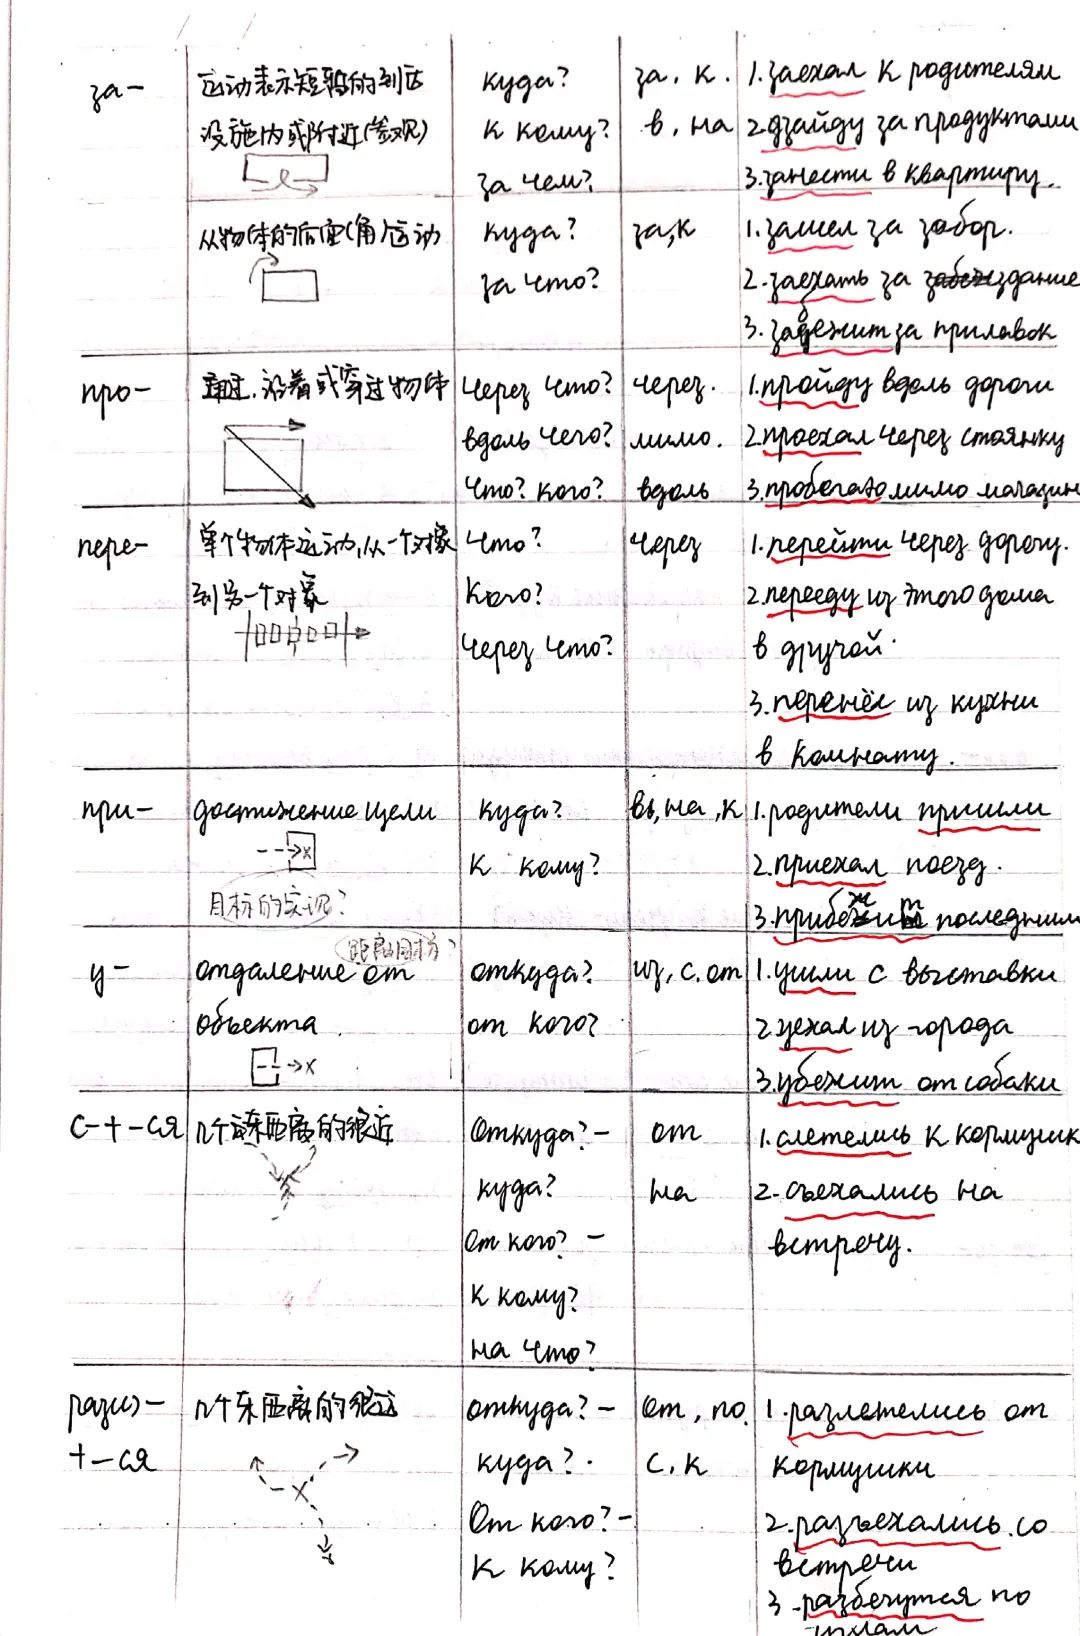 за-
运动表示短暂的到达
设施内或附近(参观)
куда?
к кому?
за чем?
за. к.
в, на
1.заехал к родителям
2.зайду за продуктами
3.занести в квартиру.
从物体的后面(角)运动
куда?
за что?
за,к
1.зашел за забор.
2.заехать за здание
3.забежит за прилавок
про-
通过,沿着或穿过物体
через что?
вдоль чего?
что? кого?
через.
мимо.
вдоль
1.пройду вдоль дороги
2.проехал через стоянку
3.пробегаю мимо магазин
пере-
单个物体运动,从一个对象
到另一个对象
что?
кого?
через что?
через
1.перейти через дорогу.
2.перееду из этого дома
в другой.
3.перенёс из кухни
в комнату.
при-
достижение цели
目标的实现?
куда?
к кому?
в, на, к
1.родители пришли
2.приехал поезд.
3.прибежит последним
у-
отдаление от
объекта
откуда?
от кого?
из, с. от
1.ушли с выставки
2.уехал из города
3.убежит от собаки
с-+-ся
几个东西离的很近
откуда?-
куда?
от кого? -
к кому?
на что?
от
на
1.слетелись к кормушк
2.съехались на
встречу.
раз(с)-
+-ся
几个东西离的很远
откуда?-
куда?.
от кого?-
к кому?
от, по.
с, к
1.разлетелись от
кормушки
2.разъехались со
встречи
3.разбегутся по